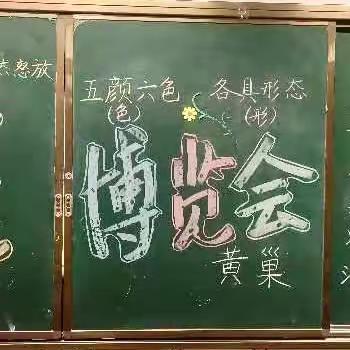 态怒放
五颜六色 各具形态
(色) (形)
博览会
黄巢